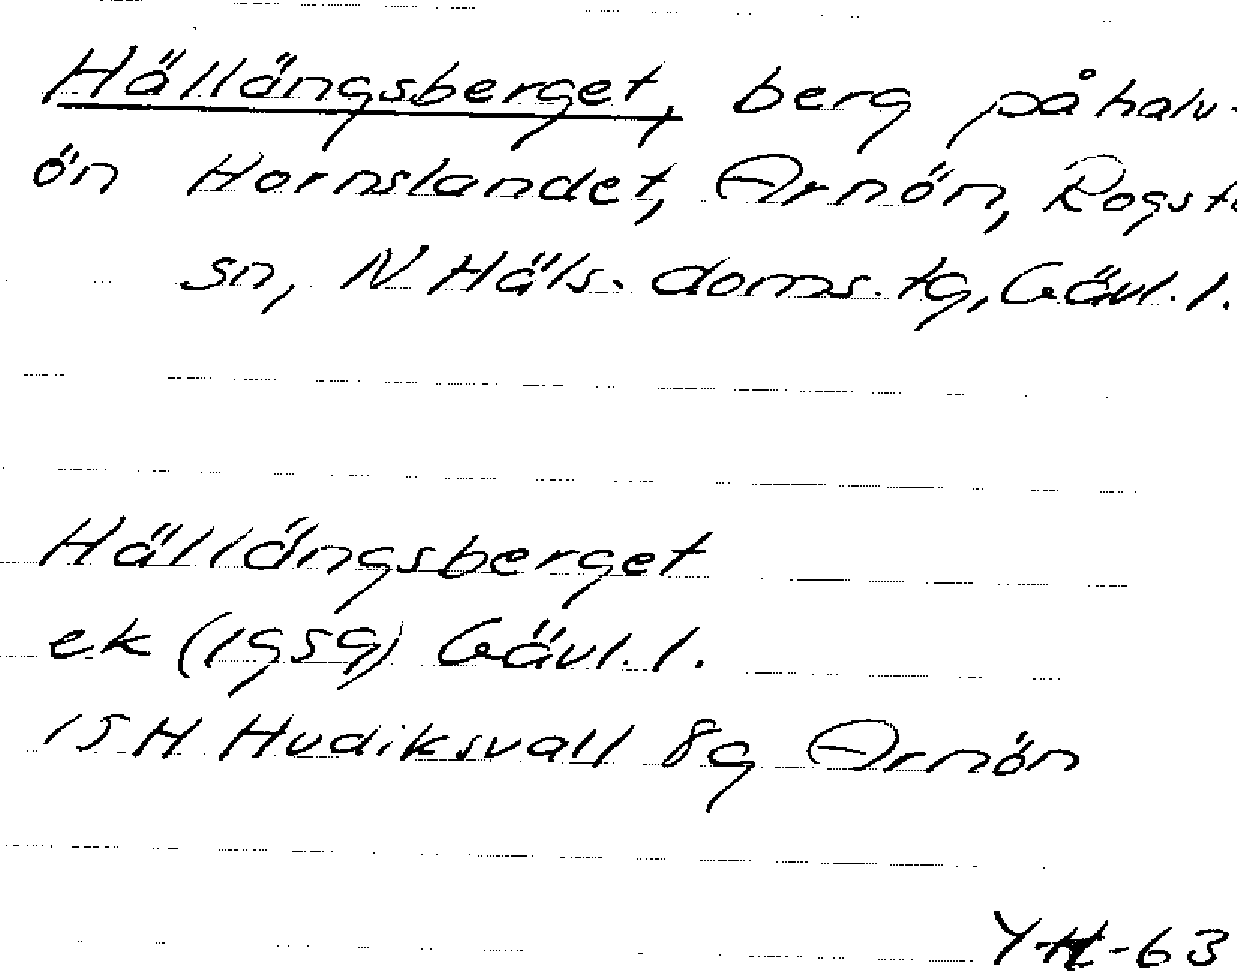 Hällängsberget, berg på halv-
ön Hornslandet, Arnön, Rogsta
sn, N Häls. doms. tg, Gävl. l.
Hällängsberget
ek (1959) Gävl. l.
15 H Hudiksvall 8g Arnön